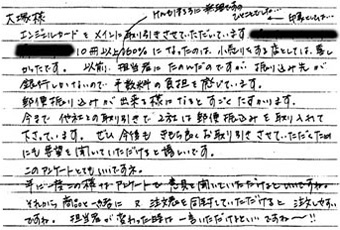 大塚様
エンジェルカードをメインに取り引きさせていただいています
10冊以上60%になったのは、小売りをする店としては、厳し
かったです。以前、担当者にたのんだのですが、振り込み先が
銀行しかないので手数料の負担を感じています。
郵便振り込みが出来る様になるとすごくたすかります。
今まで他社との取引きで2社は郵便振込みを取り入れて
下さっています。ぜひ今後も きもち良くお取り引きさせていただくため
にも要望を聞いていただけると嬉しいです。
このアンケートとてもいいですネ。
年に一度この様なアンケートで意見を聞いていただけるといいですね。
それから商品と一緒に又注文書を同封していただけると注文しやすい
ですね。担当者が変わった時は一言いただけるといいですね〜!!